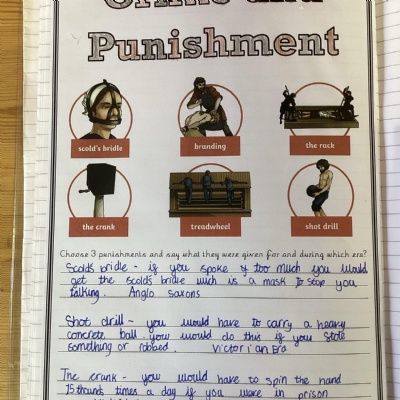 Crime and
Punishment
scold's bridle
branding
the rack
the crank
treadwheel
shot drill
Choose 3 punishments and say what they were given for and during which era?
Scolds bridle - if you spoke too much you would
get the scolds bridle wich is a mask to stop you
talking. Anglo saxons
Shot drill - you would have to carry a heavy
concrete ball. you would do this if you stole
something or robbed. Victorian Era
The crank - you would have to spin the hand
thounds times a day if you were in prison